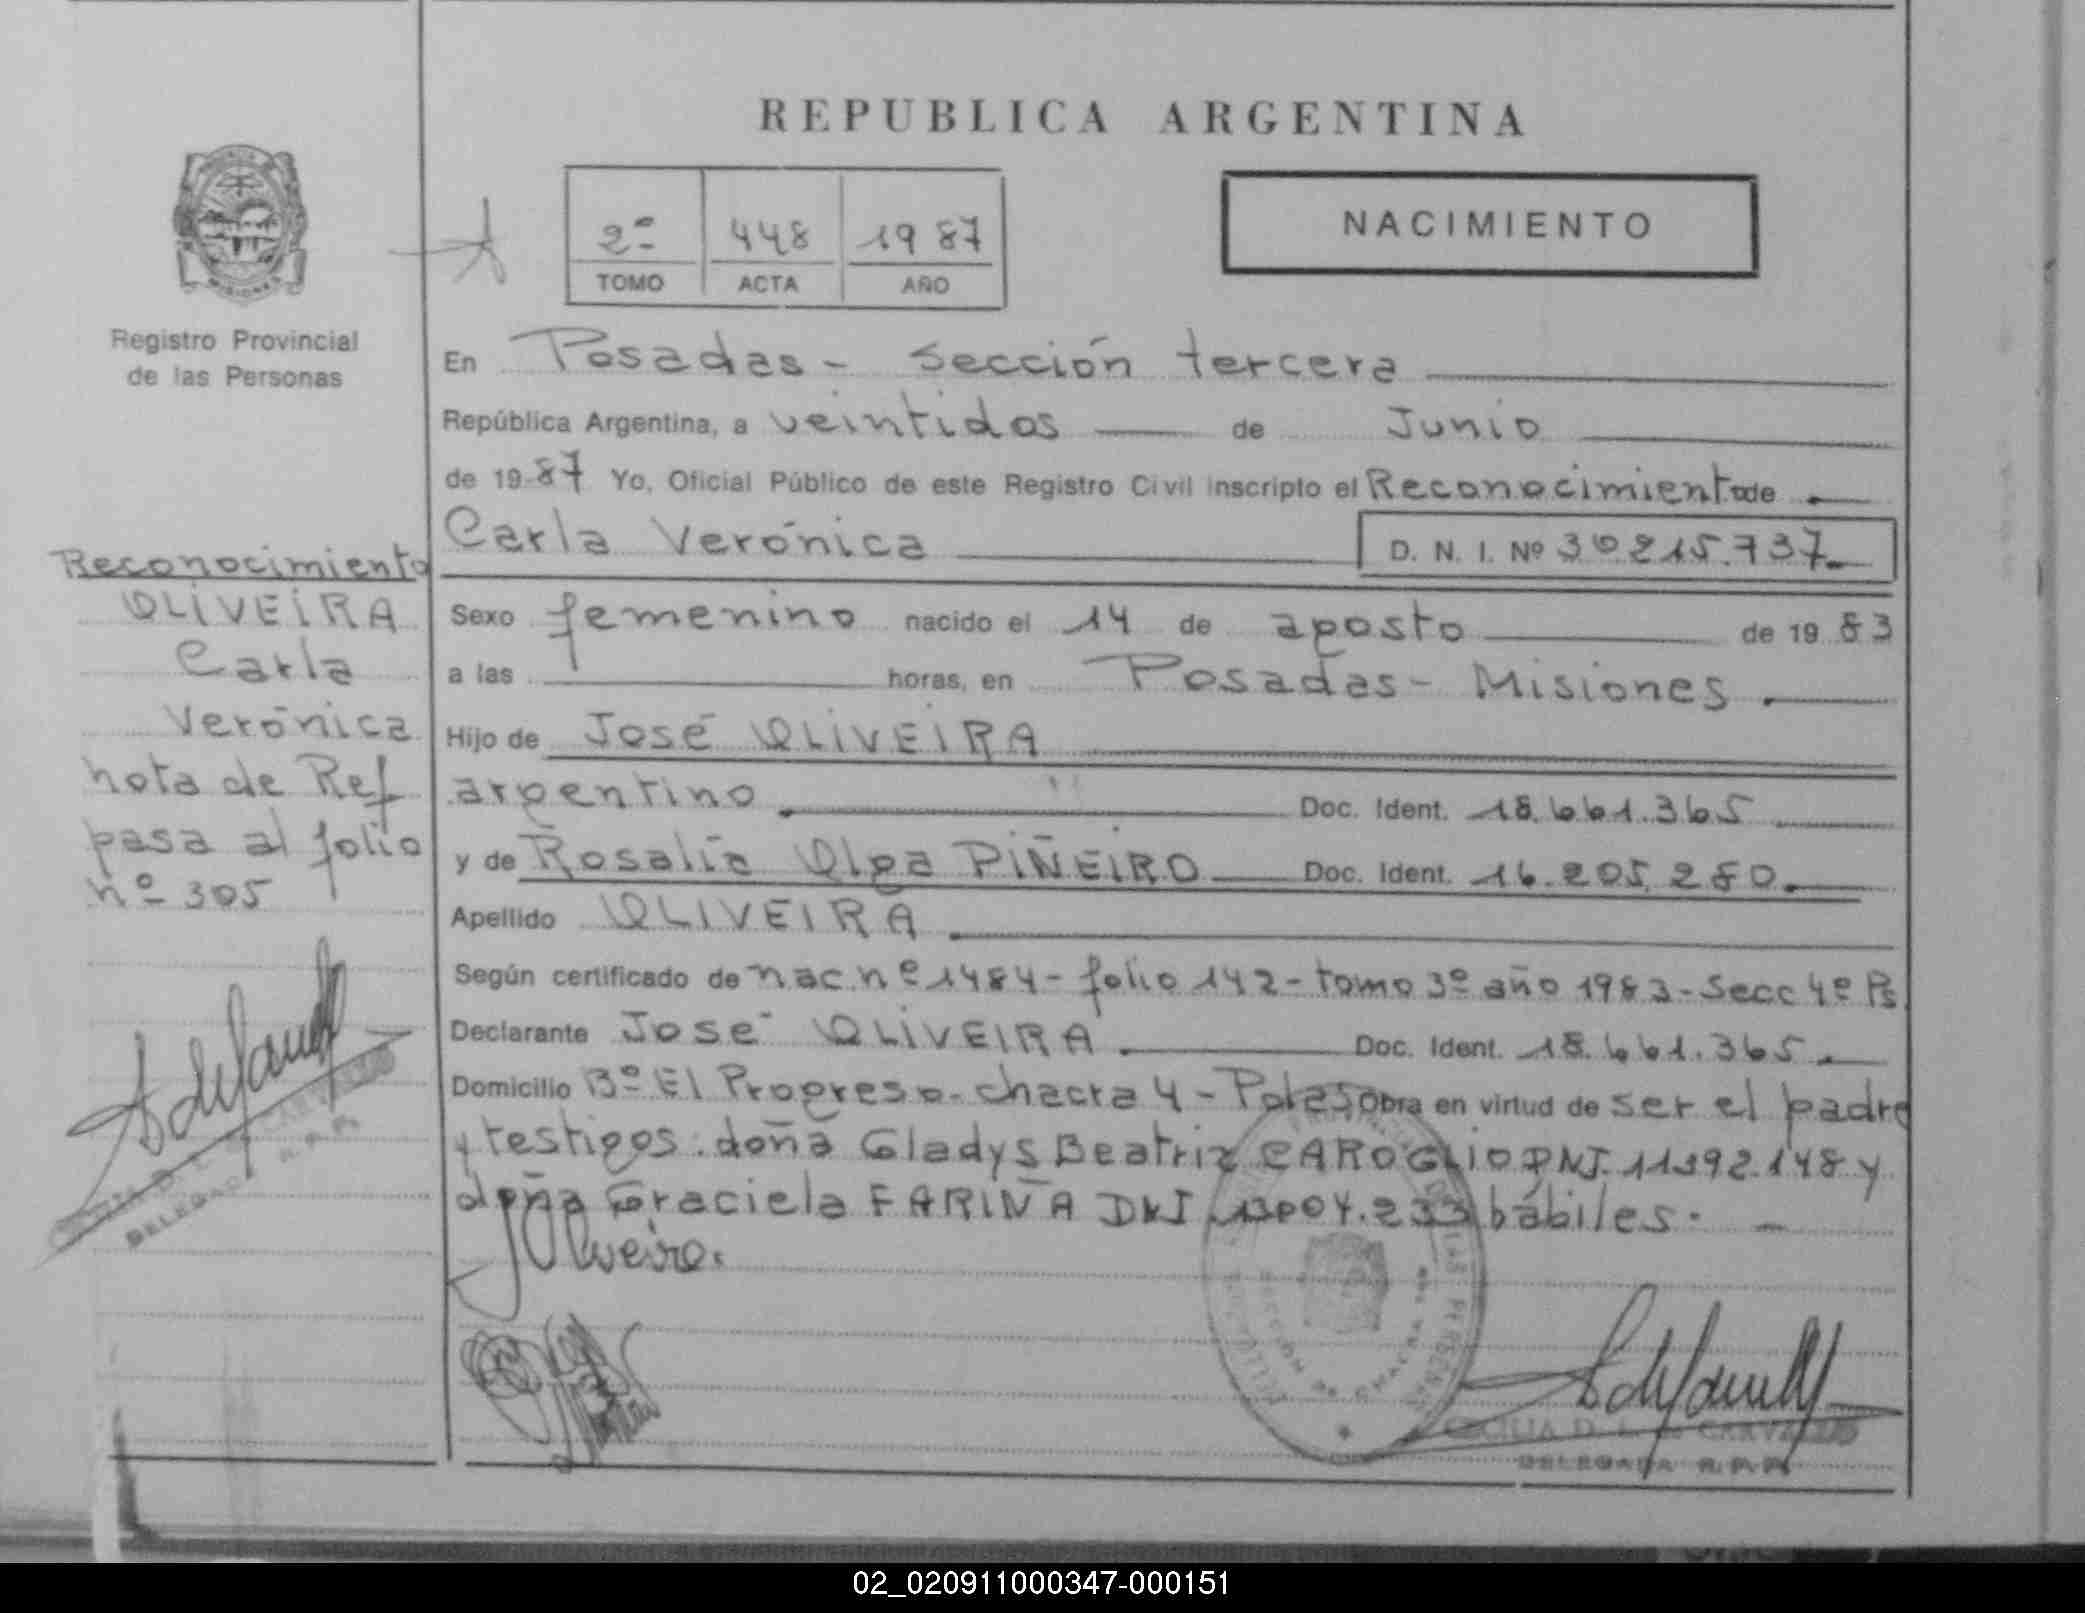 REPUBLICA ARGENTINA
2º 448 1987
TOMO ACTA AÑO
NACIMIENTO
MISIONES
Registro Provincial
de las Personas
En Posadas - Sección tercera
República Argentina, a veintidos de Junio
de 1987 Yo, Oficial Público de este Registro Civil inscripto el Reconocimiento de
Carla Verónica D. N. I. Nº 30.215.737.
Sexo femenino nacido el 14 de agosto de 1983
a las horas, en Posadas - Misiones.
Hijo de José OLIVEIRA
argentino. Doc. Ident. 18.661.365
y de Rosalía Olga PIÑEIRO Doc. Ident. 16.205.280.
Apellido OLIVEIRA
Según certificado de nac. nº 1484 - folio 142 - tomo 3º año 1983 - Secc 4º Ps
Declarante José OLIVEIRA. Doc. Ident. 18.661.365.
Domicilio Bº El Progreso. chacra 4 - Obra en virtud de ser el padre
y testigos: doña Gladys Beatriz CAROGLIO DNI. 11392.148 y
doña Graciela FARIÑA DNI hábiles.
JOliveira.
DELEGADA R.P.P.
Reconocimiento
OLIVEIRA
Carla
Verónica
nota de Ref
pasa al folio
nº 305
DELEGADA R.P.P.
02_020911000347-000151